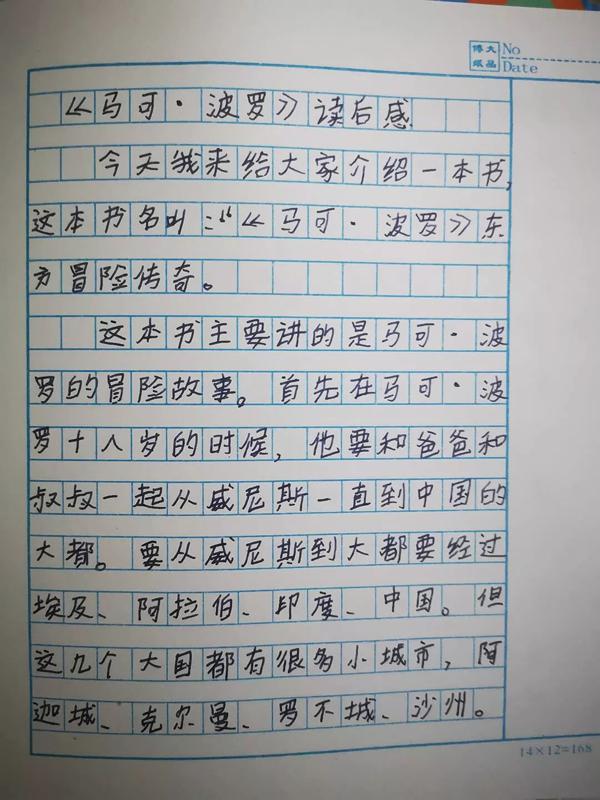 博大纸品 No
Date
《马可·波罗》读后感
今天我来给大家介绍一本书，
这本书名叫：“《马可·波罗》东
方冒险传奇。
这本书主要讲的是马可·波
罗的冒险故事。首先在马可·波
罗十八岁的时候，他要和爸爸和
叔叔一起从威尼斯一直到中国的
大都。要从威尼斯到大都要经过
埃及、阿拉伯、印度、中国。但
这几个大国都有很多小城市，阿
迦城、克尔曼、罗不城、沙州。
14×12=168